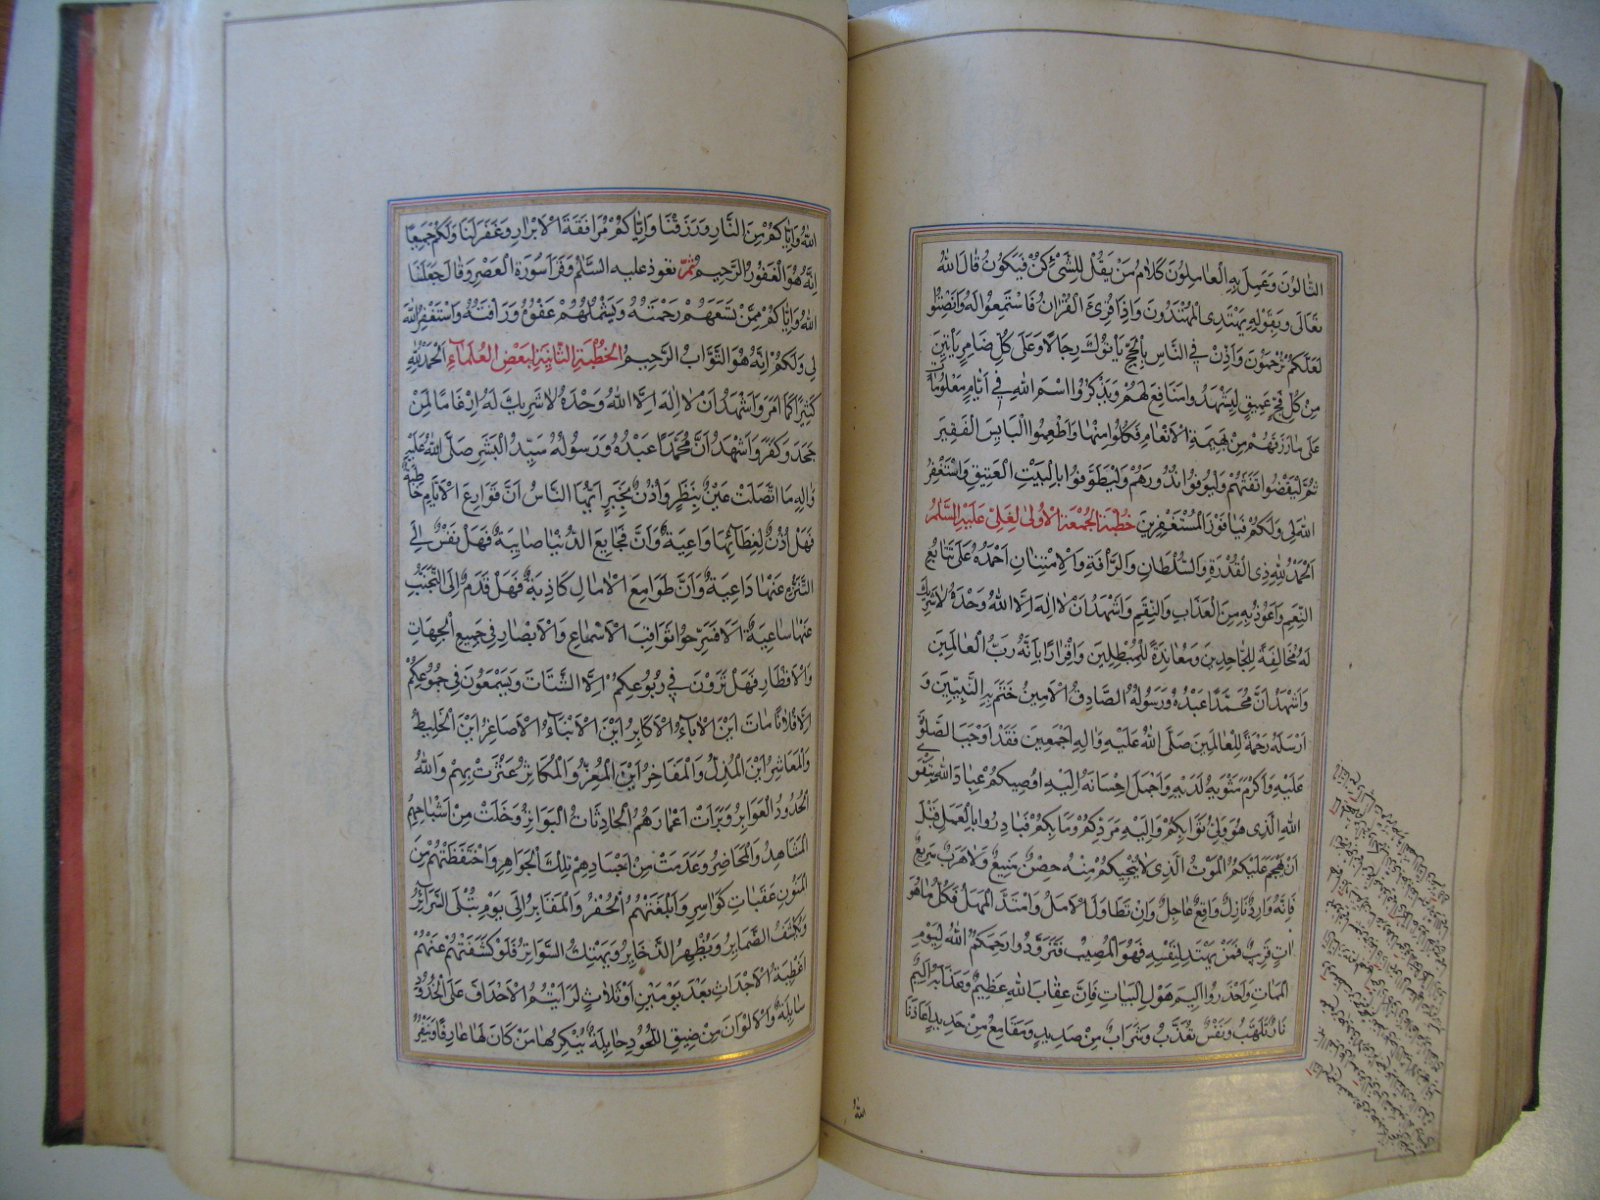 التالون وعمل به العاملون كلام من يقل للشئ كن فيكون قال الله
تعالى وبقوله يهتدي المهتدون واذا قرئ القران فاستمعوا له وانصتوا
لعلكم ترحمون واذن في الناس بالحج ياتوك رجالا وعلى كل ضامر ياتين
من كل فج عميق ليشهدوا منافع لهم ويذكروا اسم الله في ايام معلومات
على ما رزقهم من بهيمة الانعام فكلوا منها واطعموا البايس الفقير
ثم ليقضوا تفثهم وليوفوا نذورهم وليطوفوا بالبيت العتيق واستغفر
الله لي ولكم فيا فوز المستغفرين خطبة الجمعة الاولى لعلي عليه السلم
الحمد لله ذي القدرة والسلطان والرأفة والامتنان احمده على تتابع
النعم واعوذ به من العذاب والنقم واشهد ان لا اله الا الله وحده لا شريك
له مخالفة للجاحدين ومعاندة للمبطلين واقرارا بانه رب العالمين
واشهد ان محمدا عبده ورسوله الصادق الامين ختم به النبيين و
ارسله رحمة للعالمين صلى الله عليه واله اجمعين فقد اوجب الصلوة
عليه واكرم مثويه لديه واجمل احسانه اليه اوصيكم عباد الله بتقوى
الله الذي هو ولي ثوابكم واليه مردكم وما بكم فبادروا بالعمل قبل
ان يهجم عليكم الموت الذي لا ينجيكم منه حصن منيع ولا هرب سريع
فانه وارد نازل وواقع عاجل وان تطاول الامل وامتد المهل فكل ما هو
ات قريب فمن يهتد لنفسه فهو المصيب فتزودوا رحمكم الله ليوم
الممات واحذروا اليم هول البيات فان عقاب الله عظيم وعذابه اليم
نار تلهب ونفس تعذب وشراب من صديد ومقامع من حديد اعاذنا
الله
الله واياكم من النار ورزقنا واياكم مرافقة الابرار وغفر لنا ولكم جميعا
انه هو الغفور الرحيم ثم تعوذ عليه السلم وقرا سورة العصر وقال جعلنا
الله واياكم ممن تسعهم رحمته ويشملهم عفوه ورأفته واستغفر الله
لي ولكم انه هو التواب الرحيم الخطبة الثانية لبعض العلماء الحمد لله
كثيرا كما امر واشهد ان لا اله الا الله وحده لا شريك له ارغاما لمن
جحد وكفر واشهد ان محمدا عبده ورسوله سيد البشر صلى الله عليه
واله ما اتصلت عين بنظر واذن بخبر ايها الناس ان قوارع الايام خاطبة
فهل اذن لعظاتها واعية وان فجايع الدنيا صايبة فهل نفس الى
التنزه عنها داعية وان طوامع الامال كاذبة فهل قدم الى التجنب
عنها ساعية الا فسرحوا ثواقب الاسماع والابصار في جميع الجهات
والاقطار فهل ترون في ربوعكم الا الشتات وتسمعون في جموعكم
الا فلانا مات اين الاباء الاكابر اين الابناء الاصاغر اين الخليط
والمعاشر اين المدل والمفاخر اين المعزز والمكاثر عثرت بهم والله
الجدود العوابر وبرات اعمارهم الحادثات البواتر وخلت من اشباحهم
المشاهد والمحاضر وعدمت من اجسادهم تلك الجواهر واختفظتهم من
المنون عقبات كواسر وابلعتهم الحفر والمقابر الى يوم تبلى السرائر
وتكشف الضماير ويظهر الذخاير ويهتك السواتر فلو كشفتم عنهم
اغطية الاجداث بعد يومين او ثلاث لرايتم الاحداق على الخدود
سايلة والالوان من ضيق اللحود حايلة ينكرها من كان لها عارفا وينفر